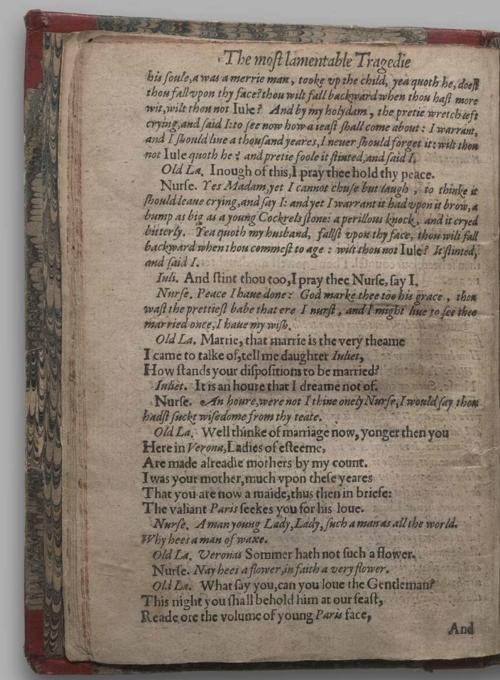 The moſt lamentable Tragedie
his ſoule, a was a merrie man, tooke vp the child, yea quoth he, doeſt
thou fall vpon thy face? thou wilt fall backward when thou haſt more
wit, wilt thou not Iule? And by my holydam, the pretie wretch left
crying, and ſaid I: to ſee now how a ieaſt ſhall come about: I warrant,
and I ſhould liue a thouſand yeares, I neuer ſhould forget it: wilt thou
not Iule quoth he? and pretie foole it ſtinted, and ſaid I.
Old La. Inough of this, I pray thee hold thy peace.
Nurſe. Yes Madam, yet I cannot chuſe but laugh, to thinke it
ſhould leaue crying, and ſay I: and yet I warrant it had vpon it brow, a
bump as big as a young Cockrels ſtone: a perillous knock, and it cryed
bitterly. Yea quoth my husband, fallſt vpon thy face, thou wilt fall
backward when thou commeſt to age: wilt thou not Iule? It ſtinted,
and ſaid I.
Iuli. And ſtint thou too, I pray thee Nurſe, ſay I.
Nurſe. Peace I haue done: God marke thee too his grace, thou
waſt the prettieſt babe that ere I nurſt, and I might liue to ſee thee
married once, I haue my wiſh.
Old La. Marrie, that marrie is the very theame
I came to talke of, tell me daughter Iuliet,
How ſtands your diſpoſitions to be married?
Iuliet. It is an houre that I dreame not of.
Nurſe. An houre, were not I thine onely Nurſe, I would ſay thou
hadſt ſuckt wiſedome from thy teate.
Old La. Well thinke of marriage now, yonger then you
Here in Verona, Ladies of eſteeme,
Are made alreadie mothers by my count.
I was your mother, much vpon theſe yeares
That you are now a maide, thus then in briefe:
The valiant Paris ſeekes you for his loue.
Nurſe. A man young Lady, Lady, ſuch a man as all the world.
Why hees a man of waxe.
Old La. Veronas Sommer hath not ſuch a flower.
Nurſe. Nay hees a flower, in faith a very flower.
Old La. What ſay you, can you loue the Gentleman?
This night you ſhall behold him at our feaſt,
Reade ore the volume of young Paris face,
And